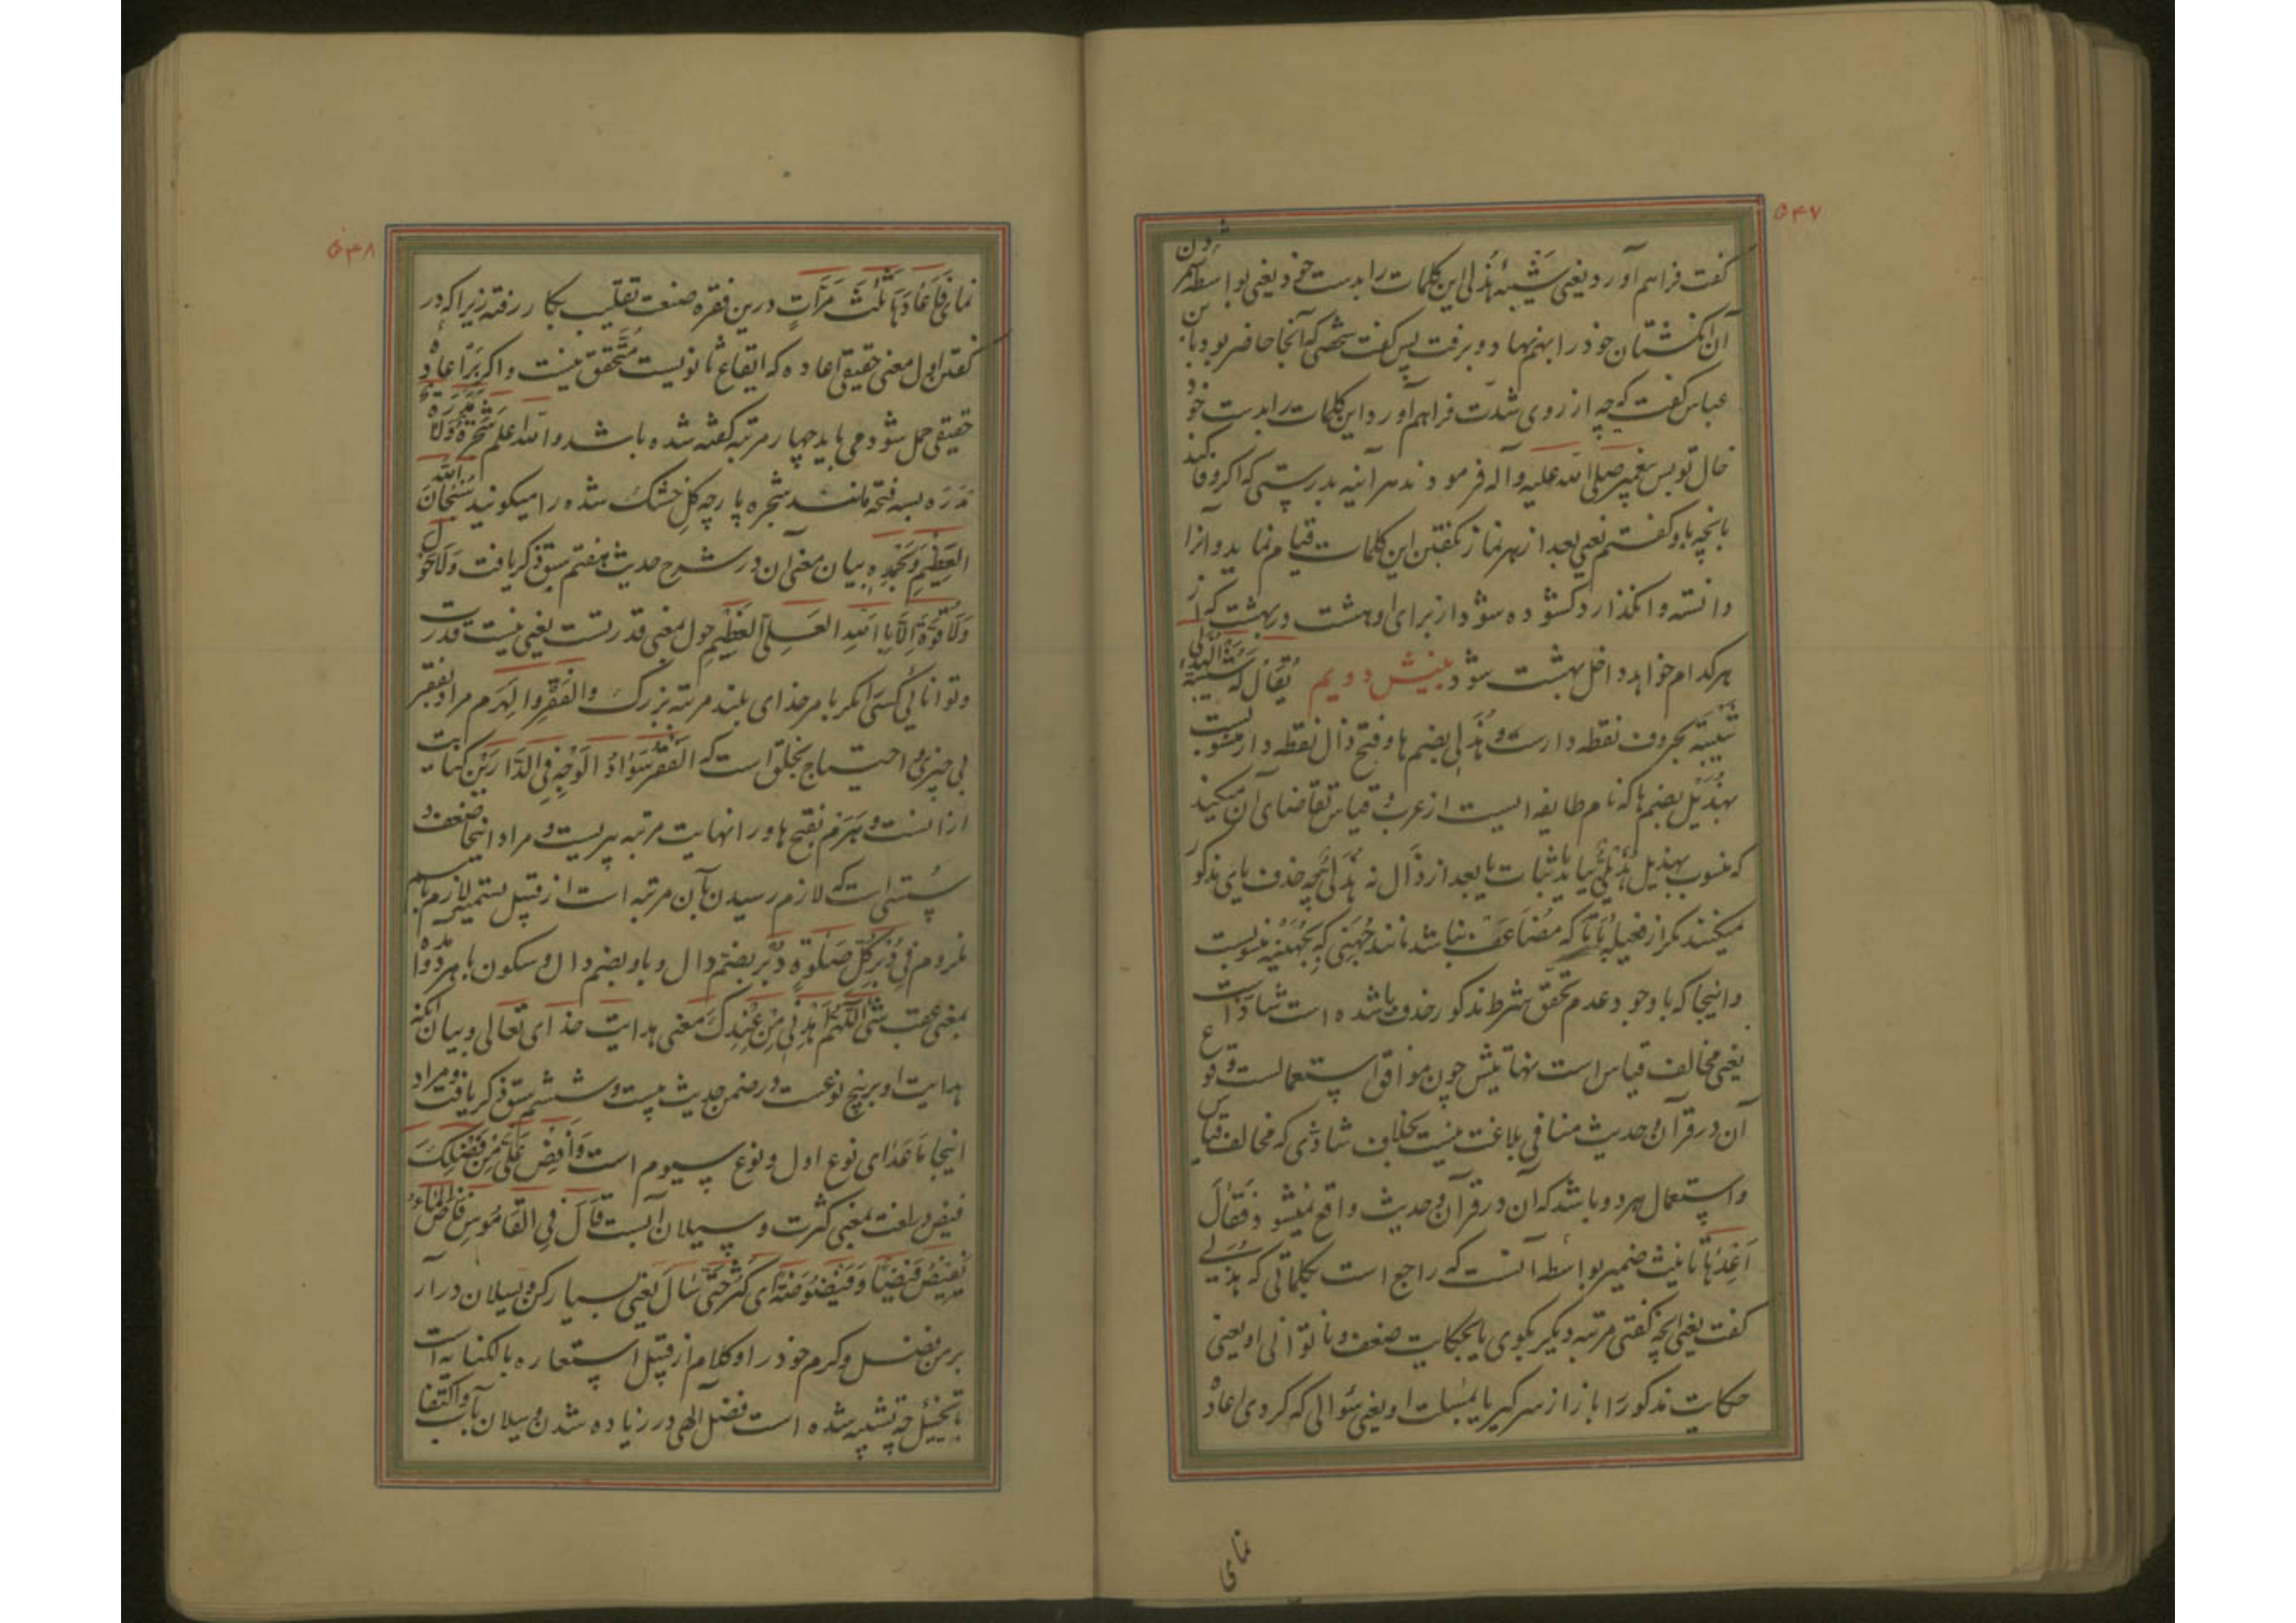 ۵۴۷
گفت فراهم آورد یعنی شَیْبَه هُذَلی این کلمات را بدست خود یعنی بواسطه شمردن
آن انگشتان خود را بهم نهاد و برفت پس گفت شخصی که آنجا حاضر بود با بن
عباس گفت که چه از روی شدّت فراهم آورد این کلمات را بدست خود
خال تو پس پیغمبر صلی الله علیه وآله فرمودند هر آینه بدرستی که اگر وفا کند
بانچه باو گفتم یعنی بعد از هر نماز بگفتن این کلمات قیام نماید و آنرا
دانسته وانگذارد گشوده شود از برای او هشت در بهشت که از
هر کدام خواهد داخل بهشت شود بینش دویم یُقَالُ لَهُ شَیْبَةُ الْهُذَلی
شَیْبَه بحروف نقطه دارست و هُذَلی بضم ها و فتح ذال نقطه دار منسوبست
بهُذَیْل بضم ها که نام طایفه ایست از عرب و قیاس تقاضای آن میکند
که منسوب بهذیل هُذَیْلی بیاید باثبات یا بعد از ذال نه هُذَلی چه حذف یای مذکور
نمیکنند مگر از فعیله باتا که مُضاعَف نباشد مانند جُهَنی که بجُهَیْنه منسوبست
و اینجا که با وجود عدم تحقق شرط مذکور حذف یا شده است شاذ است
یعنی مخالف قیاس است نهایتش چون موافق استعمالست وقوع
آن در قرآن و حدیث منافی بلاغت نیست بخلاف شاذی که مخالف قیاس
و استعمال هر دو باشد که آن در قرآن و حدیث واقع نمیشود فَقَالَ
اَعِدْهَا تانیث ضمیر بواسطه آنست که راجع است بکلماتی که هُذَلی
گفت یعنی آنچه گفتی مرتبه دیگر بگوی یا بحکایت ضعف و ناتوانی او یعنی
حکایت مذکور را باز از سر گیر یا بمسئلت او یعنی سئوالی که کردی اعاده
نمای
۵۴۸
نمای فَاَعَادَهَا ثَلٰثَ مَرَّاتٍ درین فقره صنعت تغلیب بکار رفته زیرا که در
گفتن اول معنی حقیقی اعاده که ایقاع ثانویست متحقق نیست و اگر بر اعاده
حقیقی حمل شود می باید چهار مرتبه گفته شده باشد والله اعلم شَجَرَةٌ وَلَا مَدَرَةٌ
مَدَرَه بسه فتحه مانند شجره پارچه گل خشک شده را میگویند سُبْحَانَ اللّٰهِ
العَظِیْمِ وَبِحَمْدِهِ بیان معنی آن در شرح حدیث هفتم سبق ذکر یافت وَلَا حَوْلَ
وَلَا قُوَّةَ اِلَّا بِاللّٰهِ العَلِیِّ الْعَظِیْمِ حول بمعنی قدرتست یعنی نیست قدرت
و توانائی کسی را مگر بامر خدای بلند مرتبه بزرگ وَالْفَقْرِ وَالْهَرَمِ مراد بفقر
بی چیزی و احتیاج بخلق است که اَلْفَقْرُ سَوَادُ الْوَجْهِ فِی الدَّارَیْنِ کنایت
از آنست و هَرَم بفتح ها و را نهایت مرتبه پیریست و مراد اینجا ضعف و
سُستی است که لازم رسیدن بآن مرتبه است از قبیل تسمیه لازم باسم
ملزوم فِیْ دُبُرِ کُلِّ صَلٰوةٍ دُبُر بضم دال و با و بضم دال و سکون با هر دو آمده
بمعنی عقب شی اَللّٰهُمَّ اهْدِنِیْ مِنْ عِنْدِکَ معنی هدایت خدای تعالی و بیان آنکه
هدایت او بر پنج نوعست در ضمن حدیث بیست و ششم سبق ذکر یافت و مراد
اینجا مَا عَدَای نوع اول و نوع سیوم است وَاَفِضْ عَلَیَّ مِنْ فَضْلِکَ
فیض در لغت بمعنی کثرت و سیلان آبست قَالَ فِی الْقَامُوسِ فَاضَ الْمَاءُ
یَفِیْضُ فَیْضًا وَفَیْضُوضَةً ای کَثُرَ حَتّٰی سَالَ یعنی بسیار کن و بسیلان در آر
بر من فضل و کرم خود را و کلام از قبیل استعاره بالکنایه است
با تخییل چه تشبیه شده است فضل الهی در زیاده شدن و سیلان بآب و اکتفا